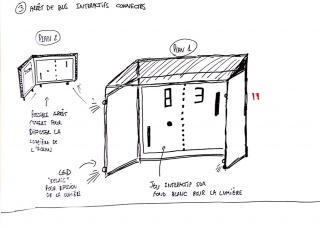 ③ ARRÊT DE BUS INTERACTIFS CONNECTÉS
PLAN 2
PLAN 1
8 3
POSSIBLE ARRÊT
OUVERT POUR
DIFFUSER LA
LUMIÈRE DE
L'ÉCRAN
LED
POUR DIFFUSION
DE LA LUMIÈRE
JEU INTERACTIF SUR
FOND BLANC POUR LA LUMIÈRE